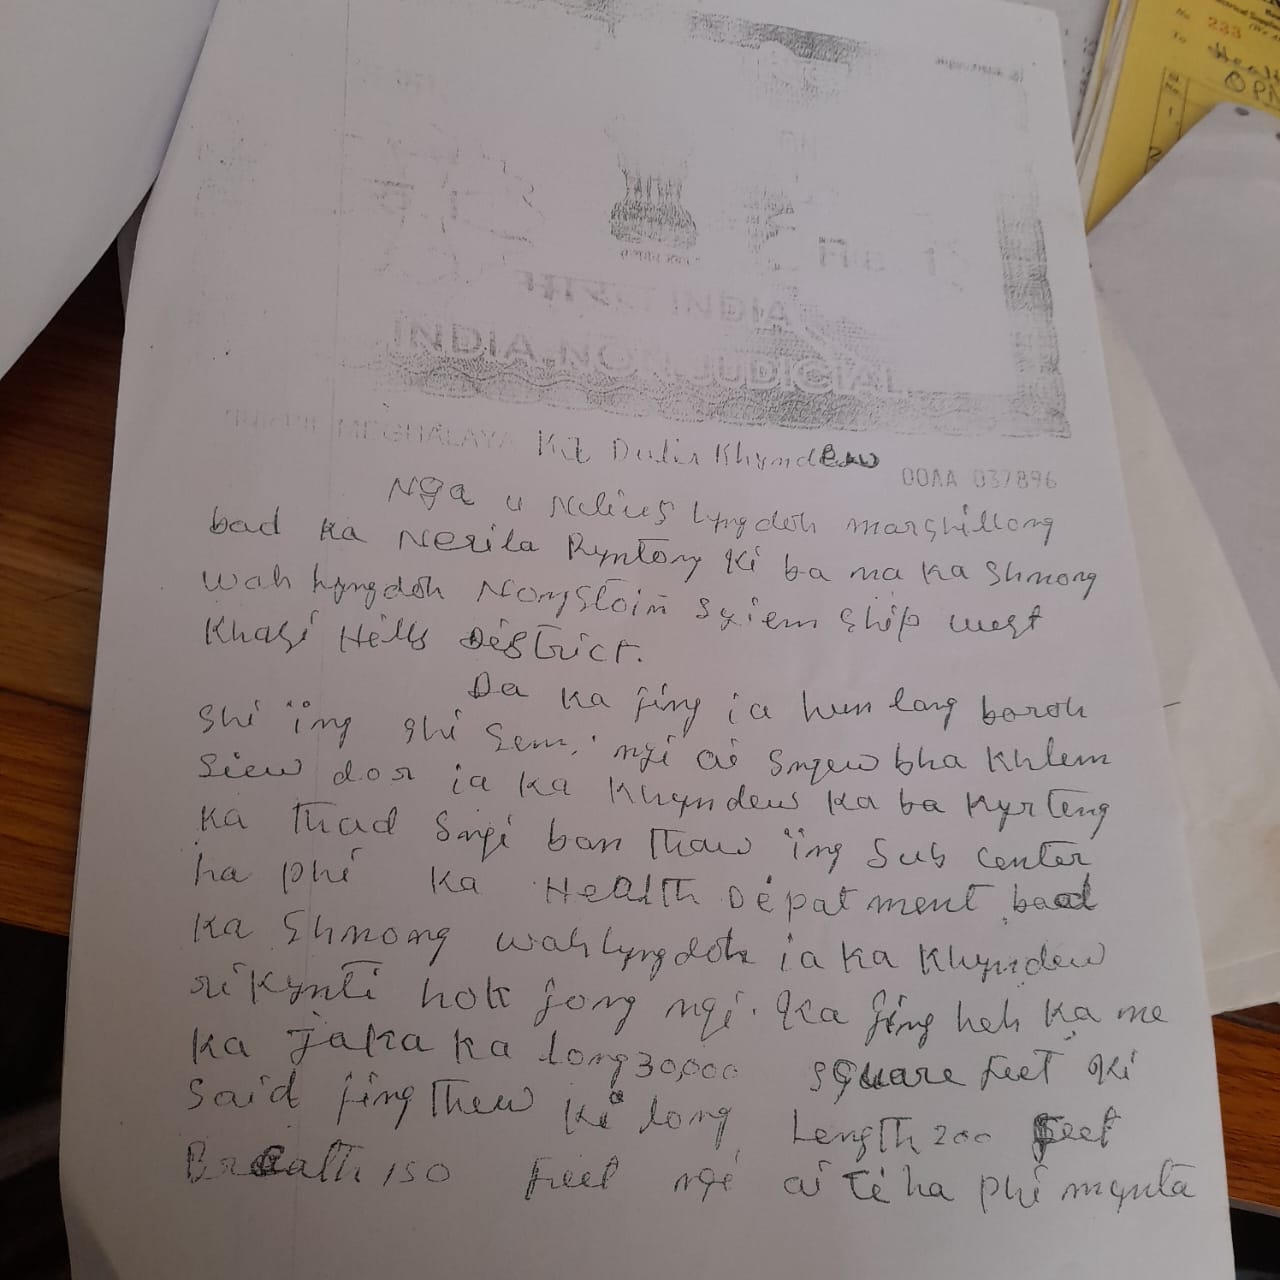 भारत INDIA
INDIA NON JUDICIAL
MEGHALAYA
00AA 037896
Ka Dulir Khyndew
Nga u Nelius Lyngdoh marshillong
bad ka Nerila Ryntong ki ba na ka Shnong
wah Lyngdoh Nongstoin Syiem Ship west
Khasi Hills District.
Da ka jing ia hun lang baroh
Shi ïing shi Sem, ngi ai Sngewbha Khlem
Siew dor ia ka Khyndew ka ba kyrteng
ka Thad Sngi ban Thaw ïing Sub Center
ha phi ka Health Depatment bad
ka Shnong wahlyngdoh ia ka Khyndew
ri Kynti hok jong ngi. Ka jing heh ka ne
ka jaka ka long 30,000 square feet ki
Said jing Thew ki long Length 200 feet
Breath 150 Feet ngi ai Ti ha phi mynta
233
To